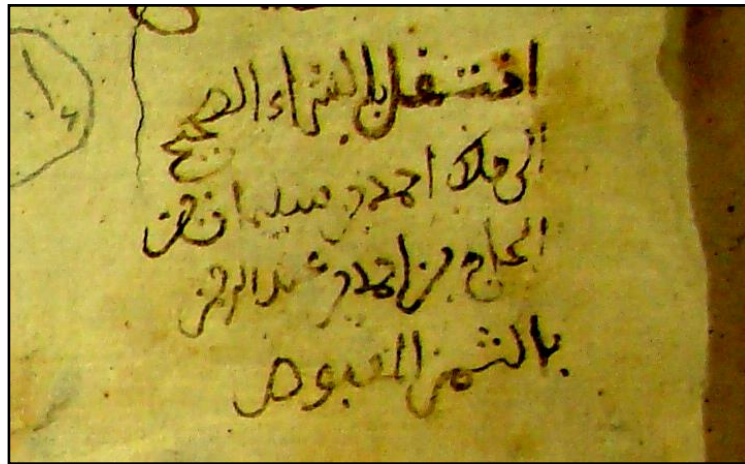 انتقل بالشراء الصحيح
الى ملك احمد بن سليمان بن
الحاج بن احمد بن عبد الرحمن
بالثمن المقبوض